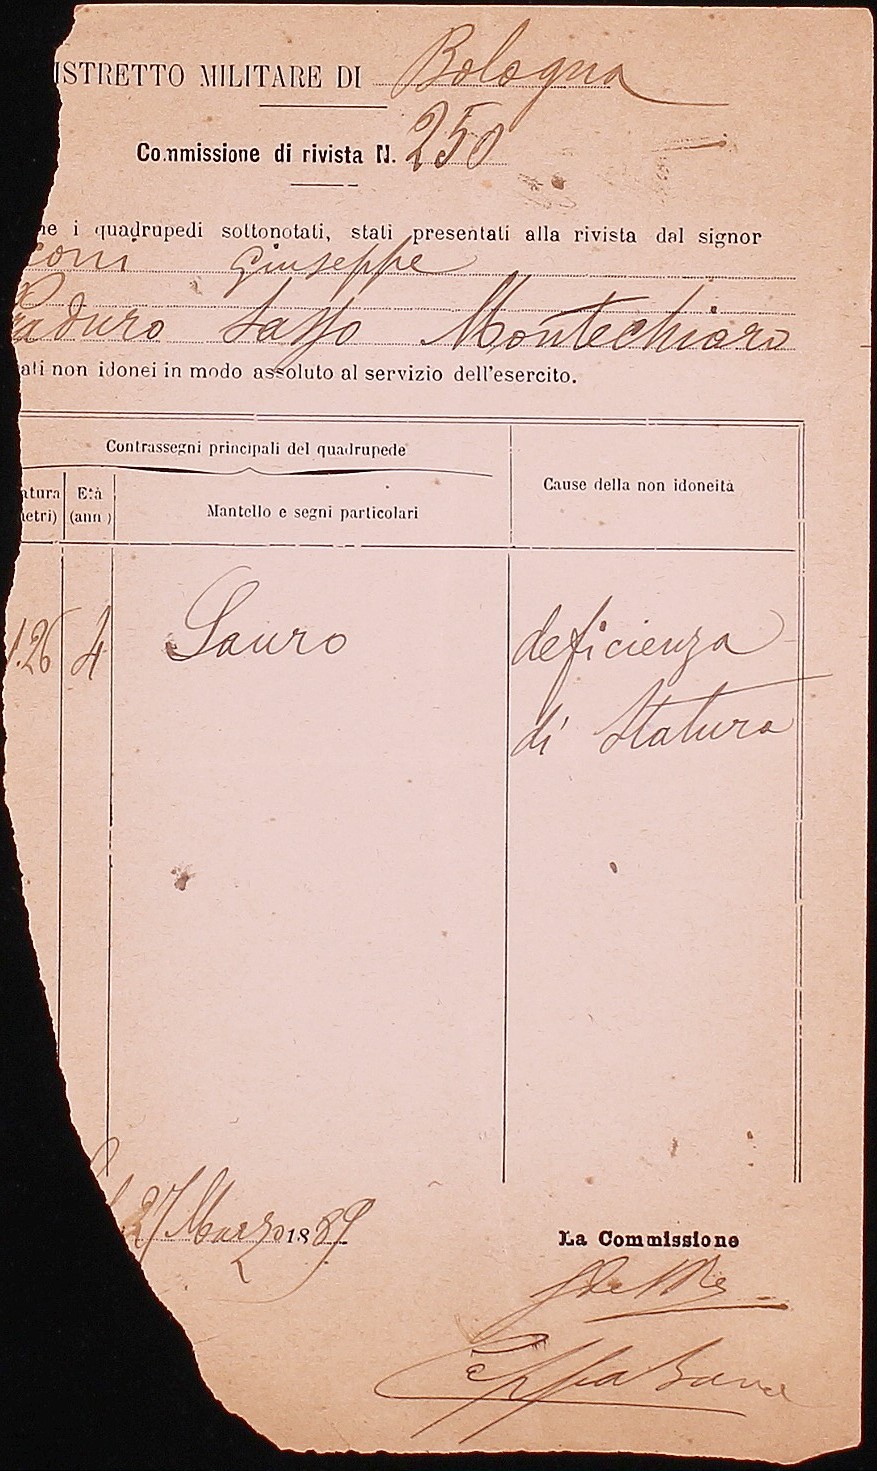 ISTRETTO MILITARE DI Bologna
Commissione di rivista N. 250
he i quadrupedi sottonotati, stati presentati alla rivista dal signor
coni Giuseppe
raduro Sasso Montechiaro
ati non idonei in modo assoluto al servizio dell'esercito.
Contrassegni principali del quadrupede
Cause della non idoneità
atura
etri)
Età
(anni)
Mantello e segni particolari
1.26 4 Sauro deficienza
di Statura
27 Marzo 1889
La Commissione